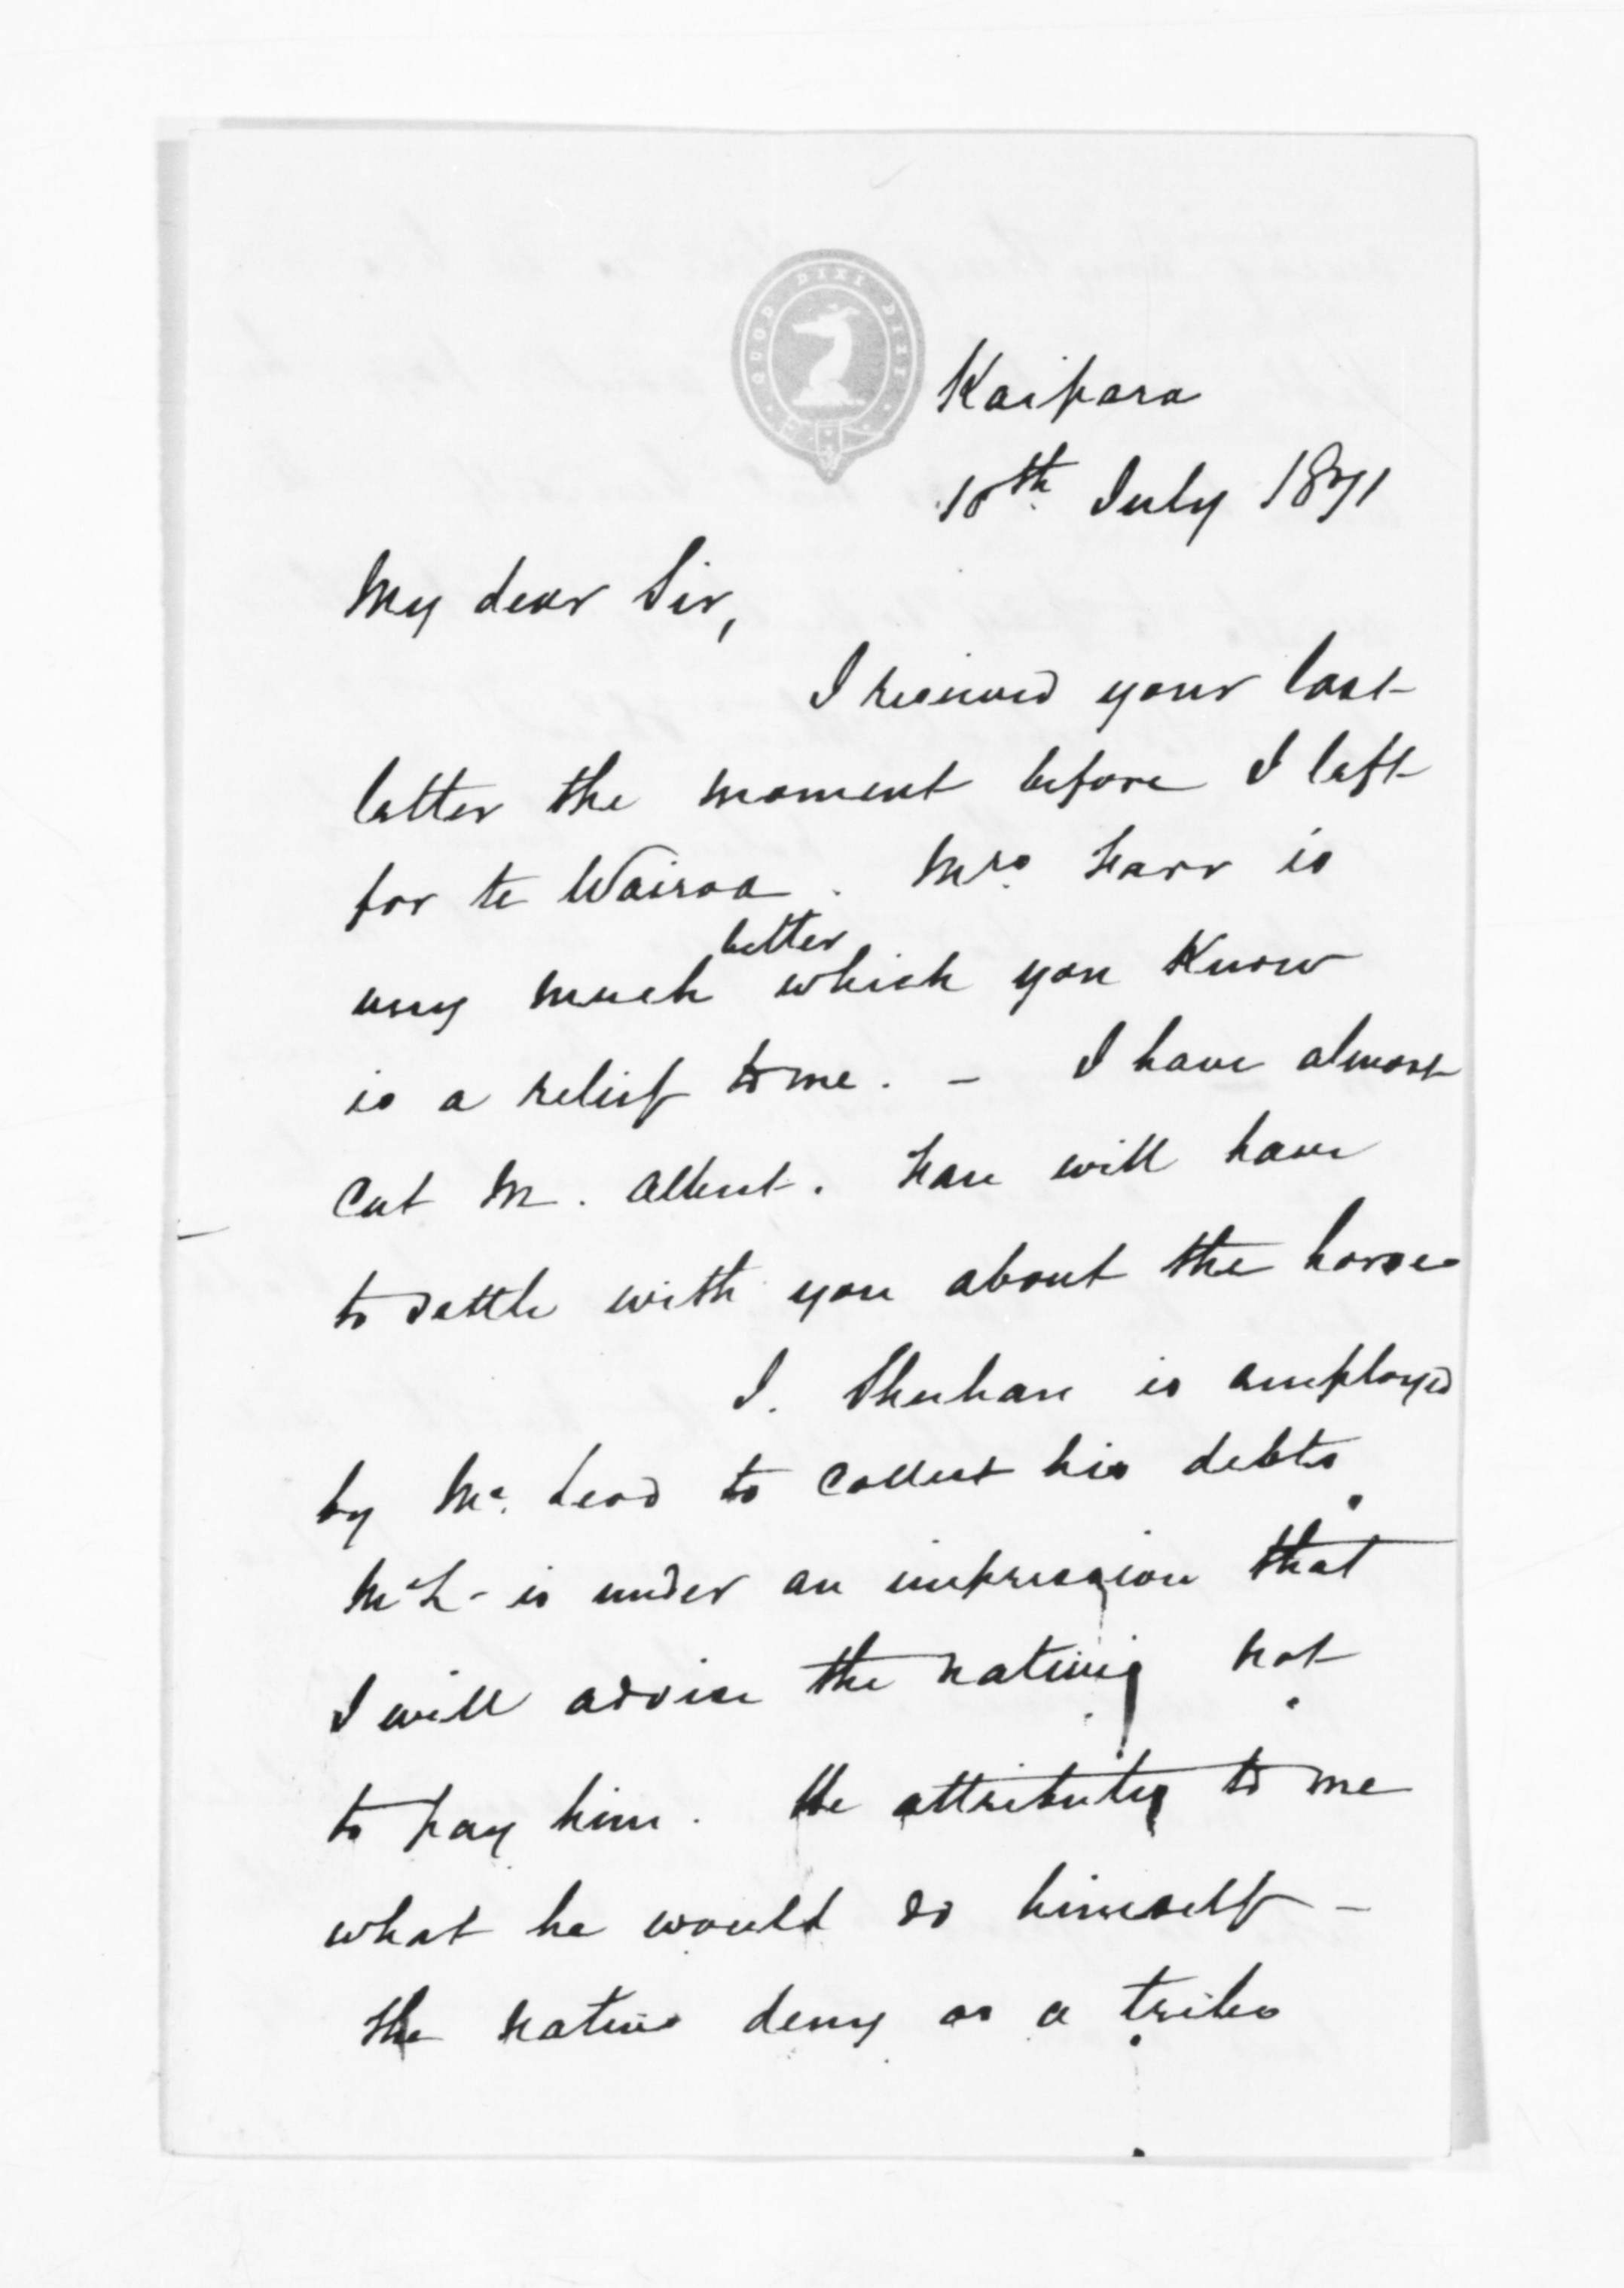 QUOD DIXI DIXI
Kaipara
10th July 1871
My dear Sir,
I received your last
letter the moment before I left
for te Wairoa. Mrs. Farr is
better
very much which you know
is a relief to me. - I have almost
cut M. Albert. will have
to settle with you about the horses
J. Sheehan is employed
by Mc. Leod to collect his debts.
McL- is under an impression that
I will advise the natives not
to pay him. He attributes to me
what he would do himself -
the natives deny as a tribe